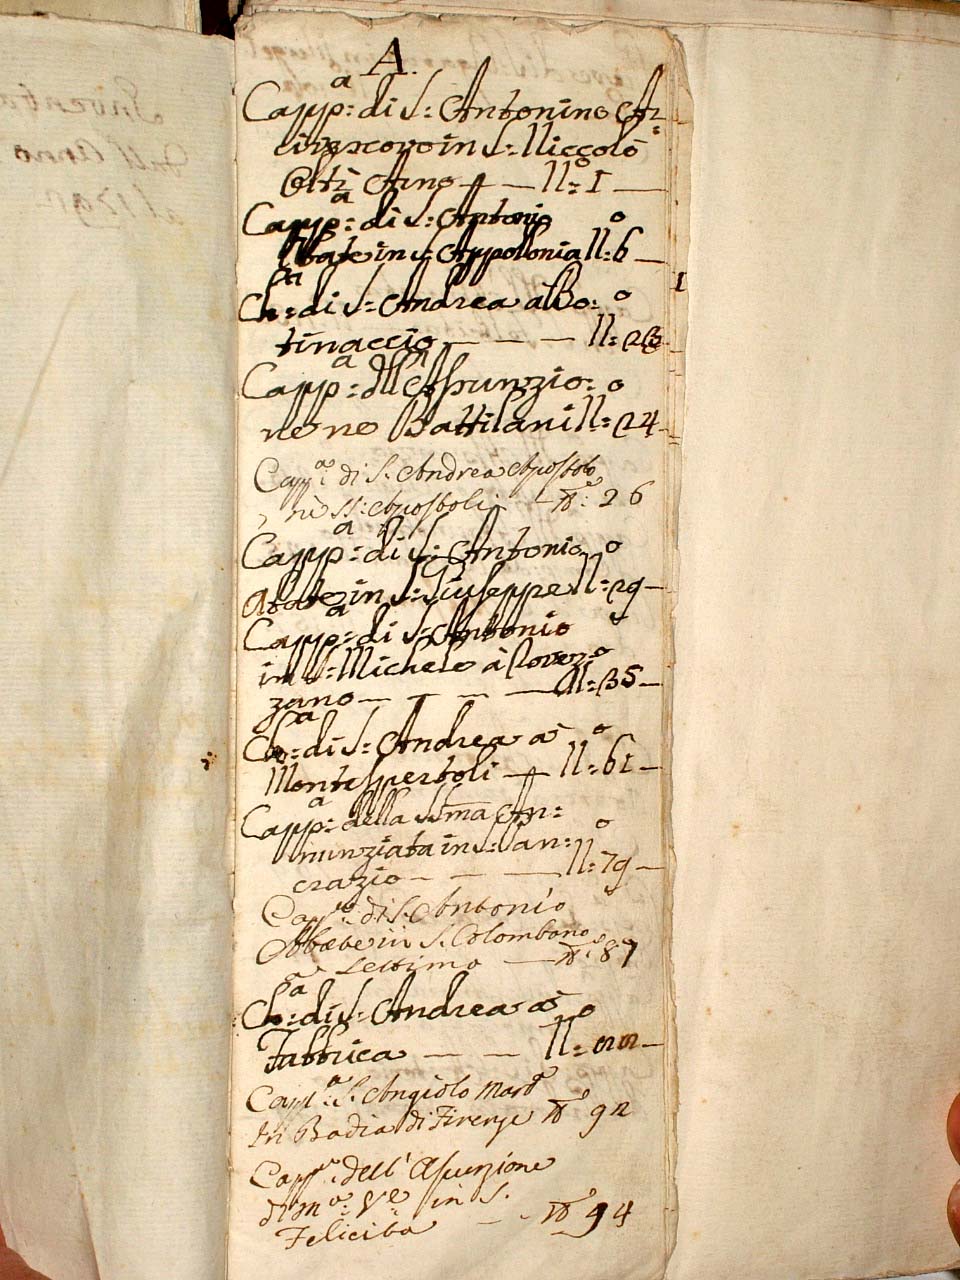 A.
Capp:a di S: Antonino Ar=
civescovo in S: Niccolò
Oltr'Arno — N:o 1 —
Capp:a di S: Antonio
Abate in S: Appollonia N:o 6 —
Ch:a di S: Andrea à Bo:
tinaccio — — — N:o 23
Capp:a dll'Assunzio:
ne ne Battilani N:o 24 —
Capp:a di S. Andrea Apostolo
ne SS: Apostoli — N:o 26
Capp:a di S: Antonio
Abate in S: Giuseppe N:o 29 —
Capp:a di S: Antonio
in S: Michele à Rovez=
zano — — — N:o 35 —
Ch:a di S: Andrea à
Montespertoli — N:o 61 —
Capp:a della SSma An:
nunziata in S: Pan:
crazio — — — N:o 79 —
Capp:a di S. Antonio
Abate in S. Colombano
a Settimo — N:o 87
Ch:a di S: Andrea à
Fabbrica — — N:o
Capp:a S. Angiolo Mart:e
In Badia di Firenze N:o 92
Capp:a dell'Asunzione
di M:a V:e in S.
Felicita — - N:o 94
1
Inventa
dall'Anno
al